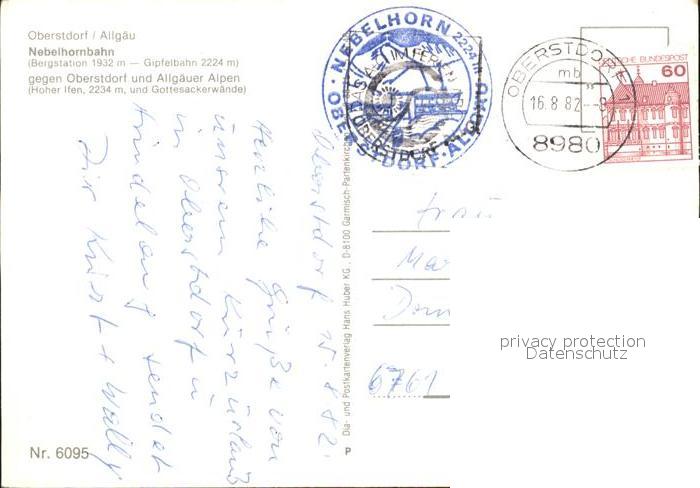 Oberstdorf / Allgäu
Nebelhornbahn
(Bergstation 1932 m — Gipfelbahn 2224 m)
gegen Oberstdorf und Allgäuer Alpen
(Hoher Ifen, 2234 m, und Gottesackerwände)
NEBELHORN 2224 m
OBERSTDORF · ALLGÄU
OBERSTDORF 1
mb
16.8.82 - 8
8980
DEUTSCHE BUNDESPOST
60
Oberstdorf 15.8.82.
Herzliche Grüße von
unserem Kurzurlaub
in Oberstdorf u
Hindelang sendet
Dir Kurt + Wally
Dia- und Postkartenverlag Hans Huber KG., D-8100 Garmisch-Partenkirchen
Frau
Ma
6761
privacy protection
Datenschutz
Nr. 6095
P